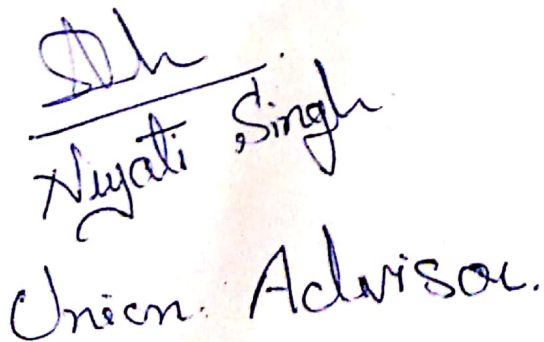 Niyati Singh
Union. Advisor.